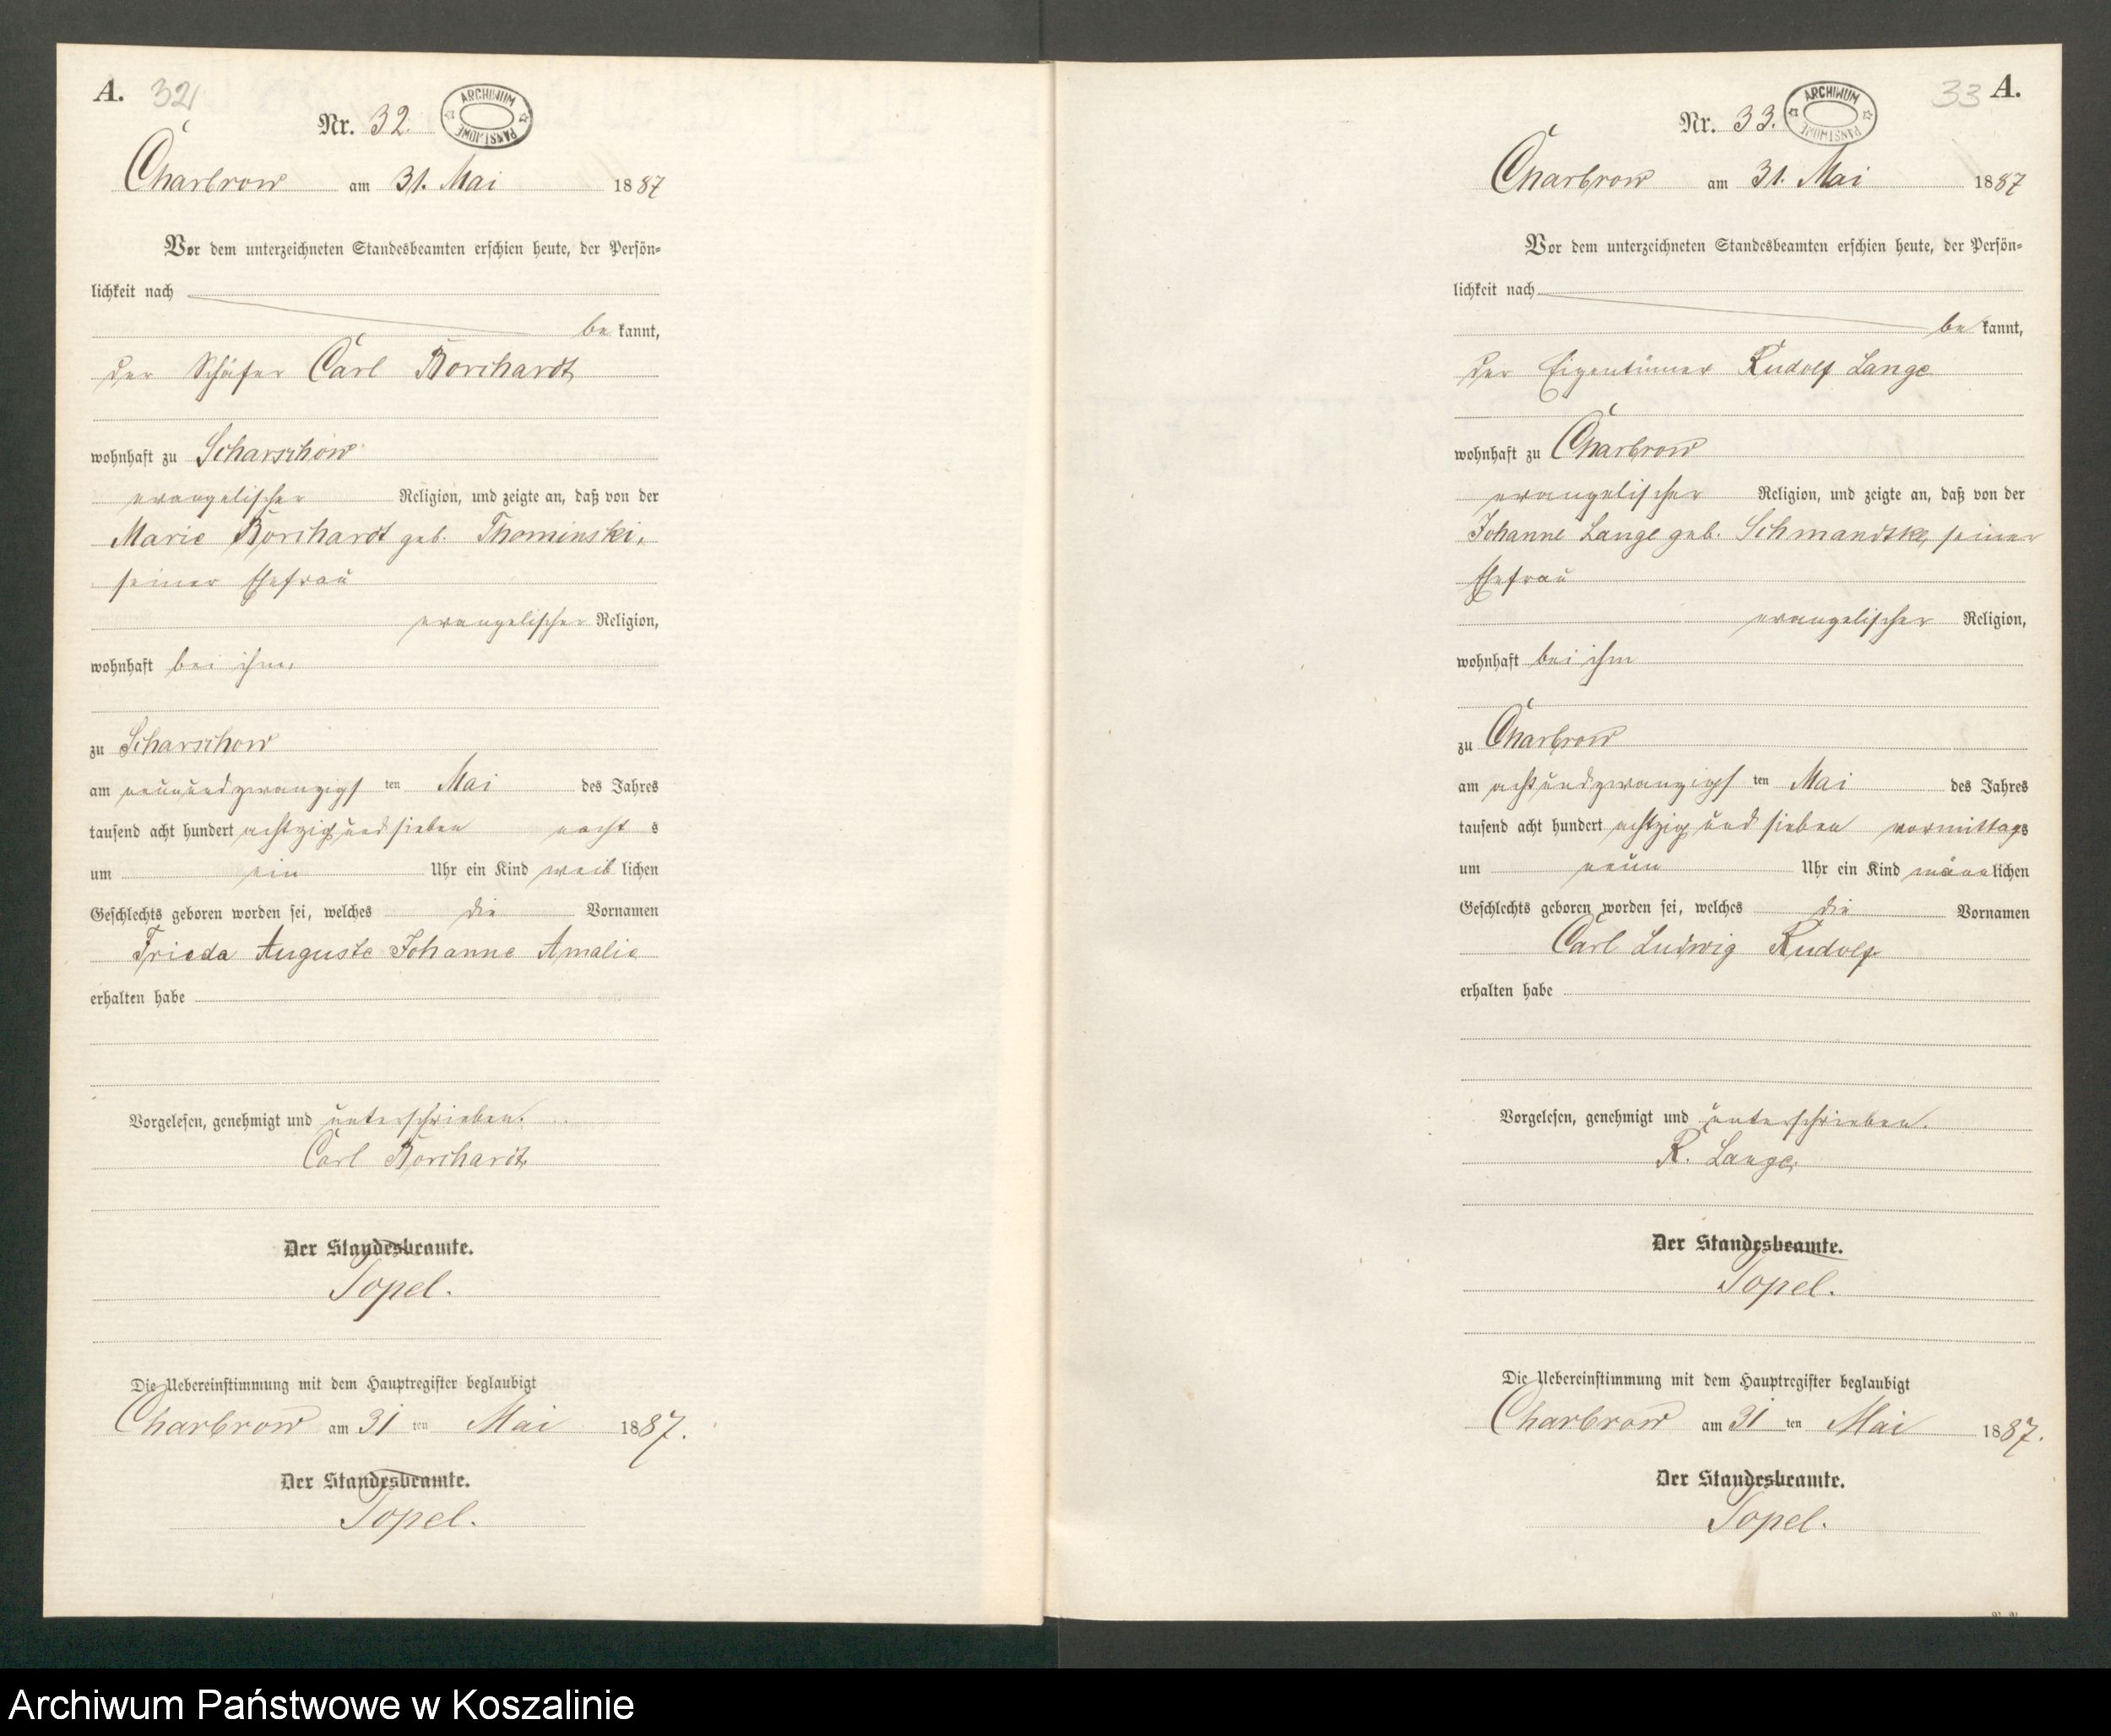 A. 32
Nr. 32.
ARCHIWUM PAŃSTWOWE
Charbrow am 31. Mai 1887
Vor dem unterzeichneten Standesbeamten erschien heute, der Persön-
lichkeit nach
be kannt,
der Schäfer Carl Borchardt
wohnhaft zu Scharschow
evangelischer Religion, und zeigte an, daß von der
Marie Borchardt geb. Thominski,
seiner Ehefrau
evangelischer Religion,
wohnhaft bei ihm,
zu Scharschow
am neunundzwanzigs ten Mai des Jahres
tausend acht hundert achtzig und sieben nacht s
um ein Uhr ein Kind weib lichen
Geschlechts geboren worden sei, welches die Vornamen
Frieda Auguste Johanne Amalie
erhalten habe
Vorgelesen, genehmigt und unterschrieben.
Carl Borchardt
Der Standesbeamte.
Topel.
Die Uebereinstimmung mit dem Hauptregister beglaubigt
Charbrow am 31 ten Mai 1887.
Der Standesbeamte.
Topel.
33 A.
Nr. 33.
ARCHIWUM PAŃSTWOWE
Charbrow am 31. Mai 1887
Vor dem unterzeichneten Standesbeamten erschien heute, der Persön-
lichkeit nach
be kannt,
der Eigentümer Rudolf Lange
wohnhaft zu Charbrow
evangelischer Religion, und zeigte an, daß von der
Johanne Lange geb. Schmandtke, seiner
Ehefrau
evangelischer Religion,
wohnhaft bei ihm
zu Charbrow
am achtundzwanzigs ten Mai des Jahres
tausend acht hundert achtzig und sieben vormittags
um neun Uhr ein Kind männlichen
Geschlechts geboren worden sei, welches die Vornamen
Carl Ludwig Rudolf
erhalten habe
Vorgelesen, genehmigt und unterschrieben.
R. Lange
Der Standesbeamte.
Topel.
Die Uebereinstimmung mit dem Hauptregister beglaubigt
Charbrow am 31 ten Mai 1887.
Der Standesbeamte.
Topel.
Archiwum Państwowe w Koszalinie